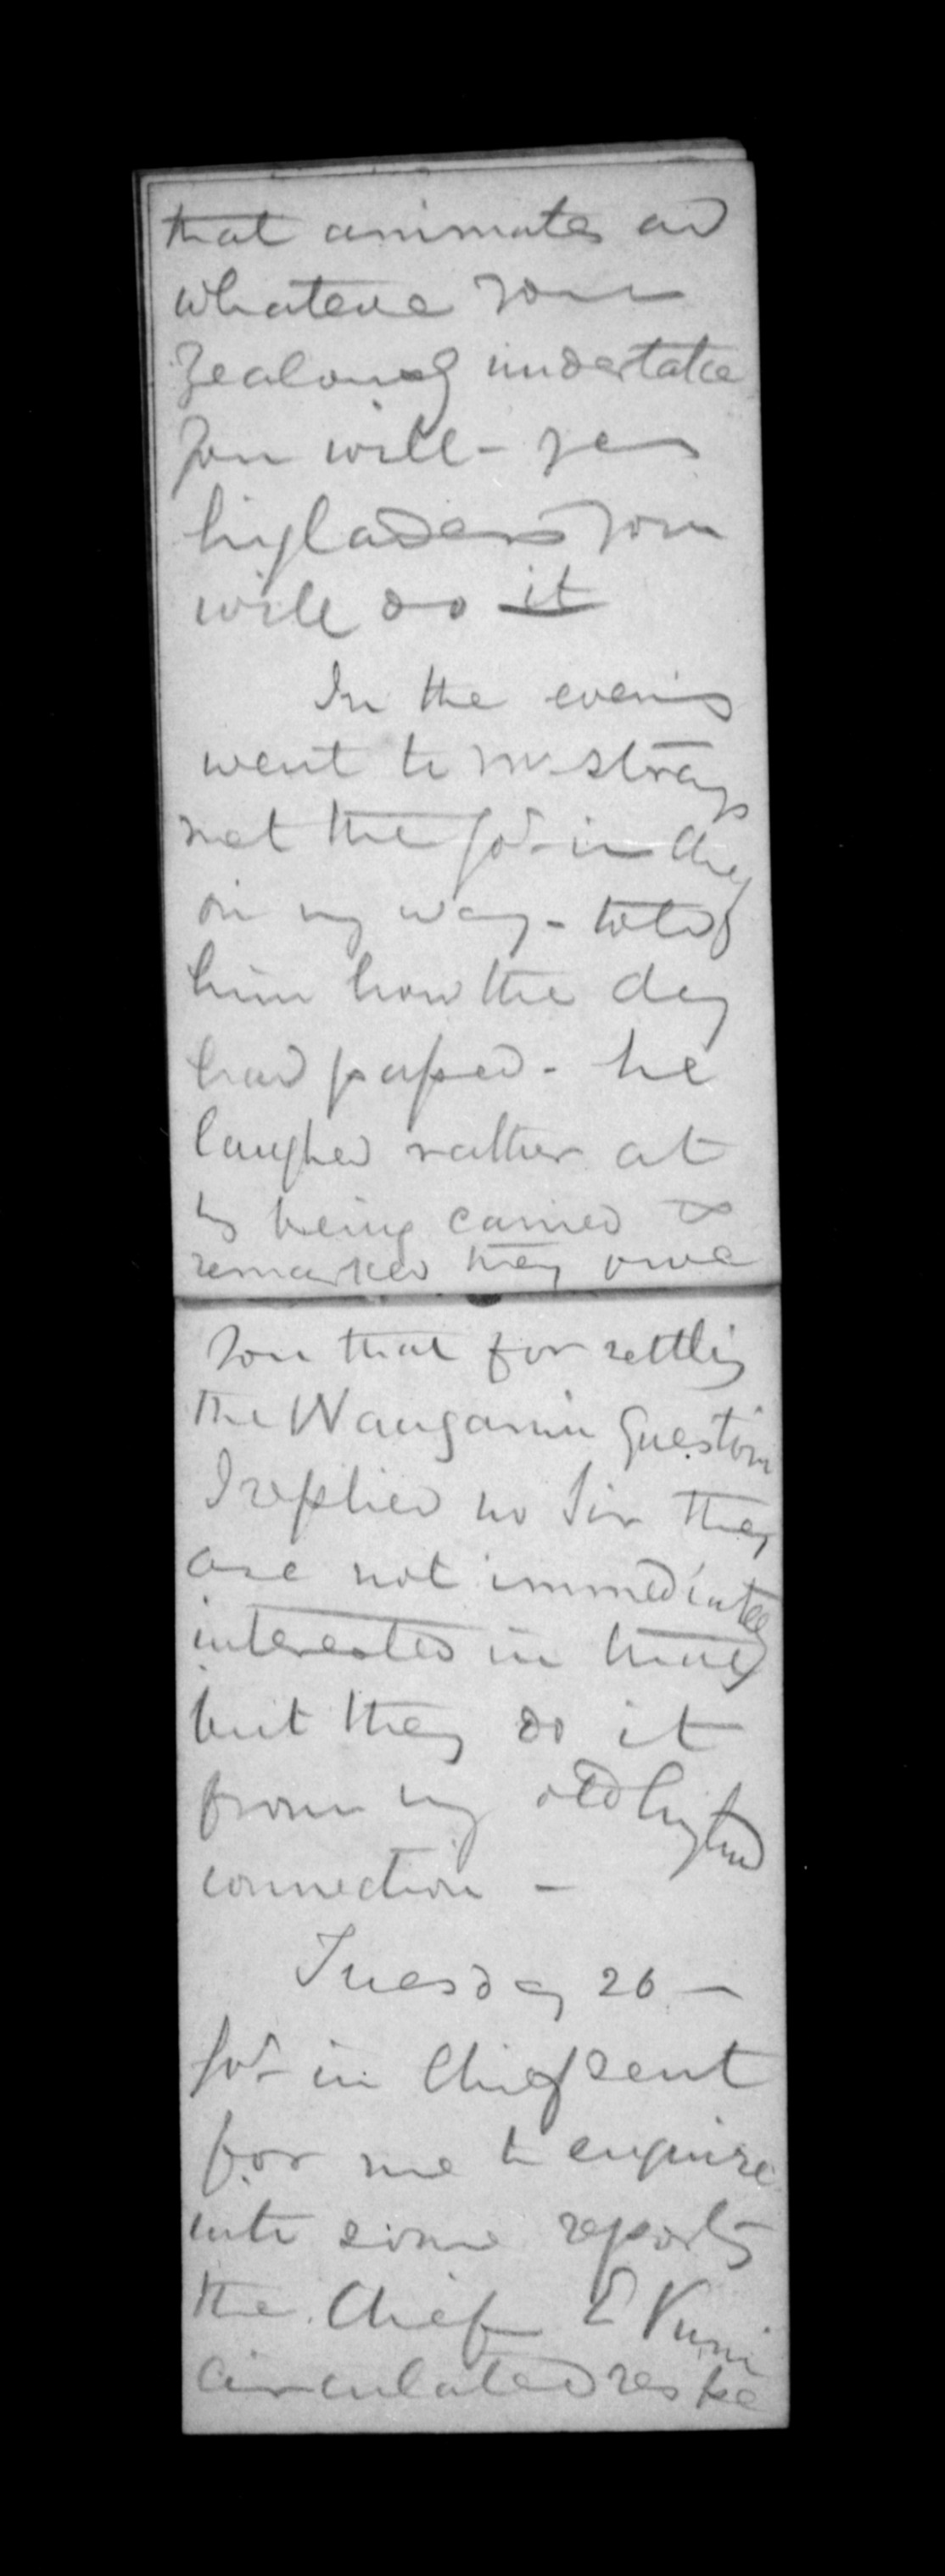 that animates and
whatever you
zealously undertake
you will - yes
highlanders you
will do it
In the evening
went to Mr Strangs
met the Govr in Chief
on my way - told
him how the day
had passed - he
laughed rather at
my being carried &
remarked they owe
you that for settling
the Wanganui Question
I replied no Sir they
are not immediately
interested in that
but they do it
from my old highland
connection -
Tuesday 26 -
Govr in Chief sent
for me to enquire
into some reports
the Chief E Kuni
circulated respe